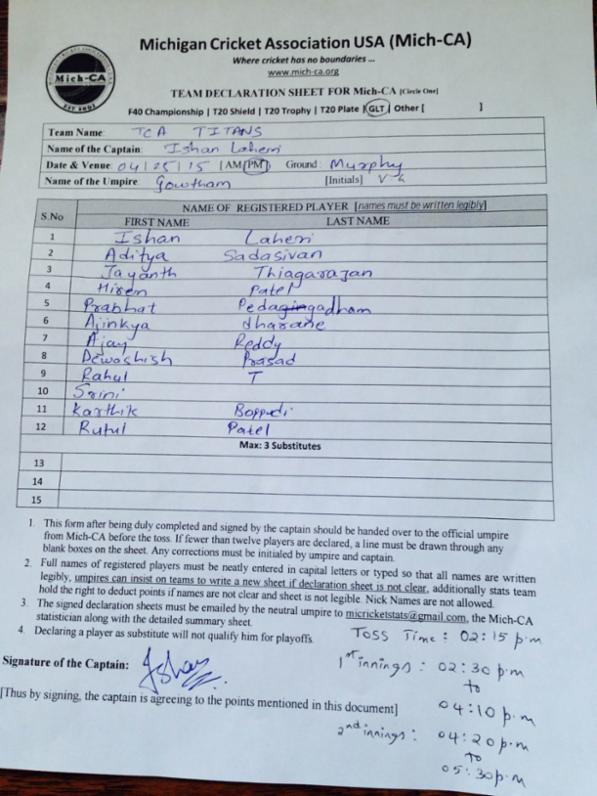 Michigan Cricket Association USA (Mich-CA)
Where cricket has no boundaries ...
www.mich-ca.org
Mich-CA
EST 2001
TEAM DECLARATION SHEET FOR Mich-CA [Circle One]
F40 Championship | T20 Shield | T20 Trophy | T20 Plate | GLT | Other [ ]
Team Name: TCA TITANS
Name of the Captain: Ishan Laheri
Date & Venue: 04/25/15 [AM/PM] Ground: Murphy
Name of the Umpire: Gowtham [Initials] V.G
S.No NAME OF REGISTERED PLAYER [names must be written legibly]
FIRST NAME LAST NAME
1 Ishan Laheri
2 Aditya Sadasivan
3 Jayanth Thiagarajan
4 Hiren Patel
5 Prabhat Pedagingadham
6 Ajinkya dharane
7 Ajay Reddy
8 Dewashish Prasad
9 Rahul T
10 Srini
11 Karthik Boppudi
12 Rutul Patel
Max: 3 Substitutes
13
14
15
1. This form after being duly completed and signed by the captain should be handed over to the official umpire
from Mich-CA before the toss. If fewer than twelve players are declared, a line must be drawn through any
blank boxes on the sheet. Any corrections must be initialed by umpire and captain.
2. Full names of registered players must be neatly entered in capital letters or typed so that all names are written
legibly, umpires can insist on teams to write a new sheet if declaration sheet is not clear, additionally stats team
hold the right to deduct points if names are not clear and sheet is not legible. Nick Names are not allowed.
3. The signed declaration sheets must be emailed by the neutral umpire to micricketstats@gmail.com, the Mich-CA
statistician along with the detailed summary sheet.
4. Declaring a player as substitute will not qualify him for playoffs.
Signature of the Captain: Ishan
[Thus by signing, the captain is agreeing to the points mentioned in this document]
Toss Time: 02:15 p.m
1st innings: 02:30 p.m
to
04:10 p.m
2nd innings: 04:20 p.m
to
05:30 p.m